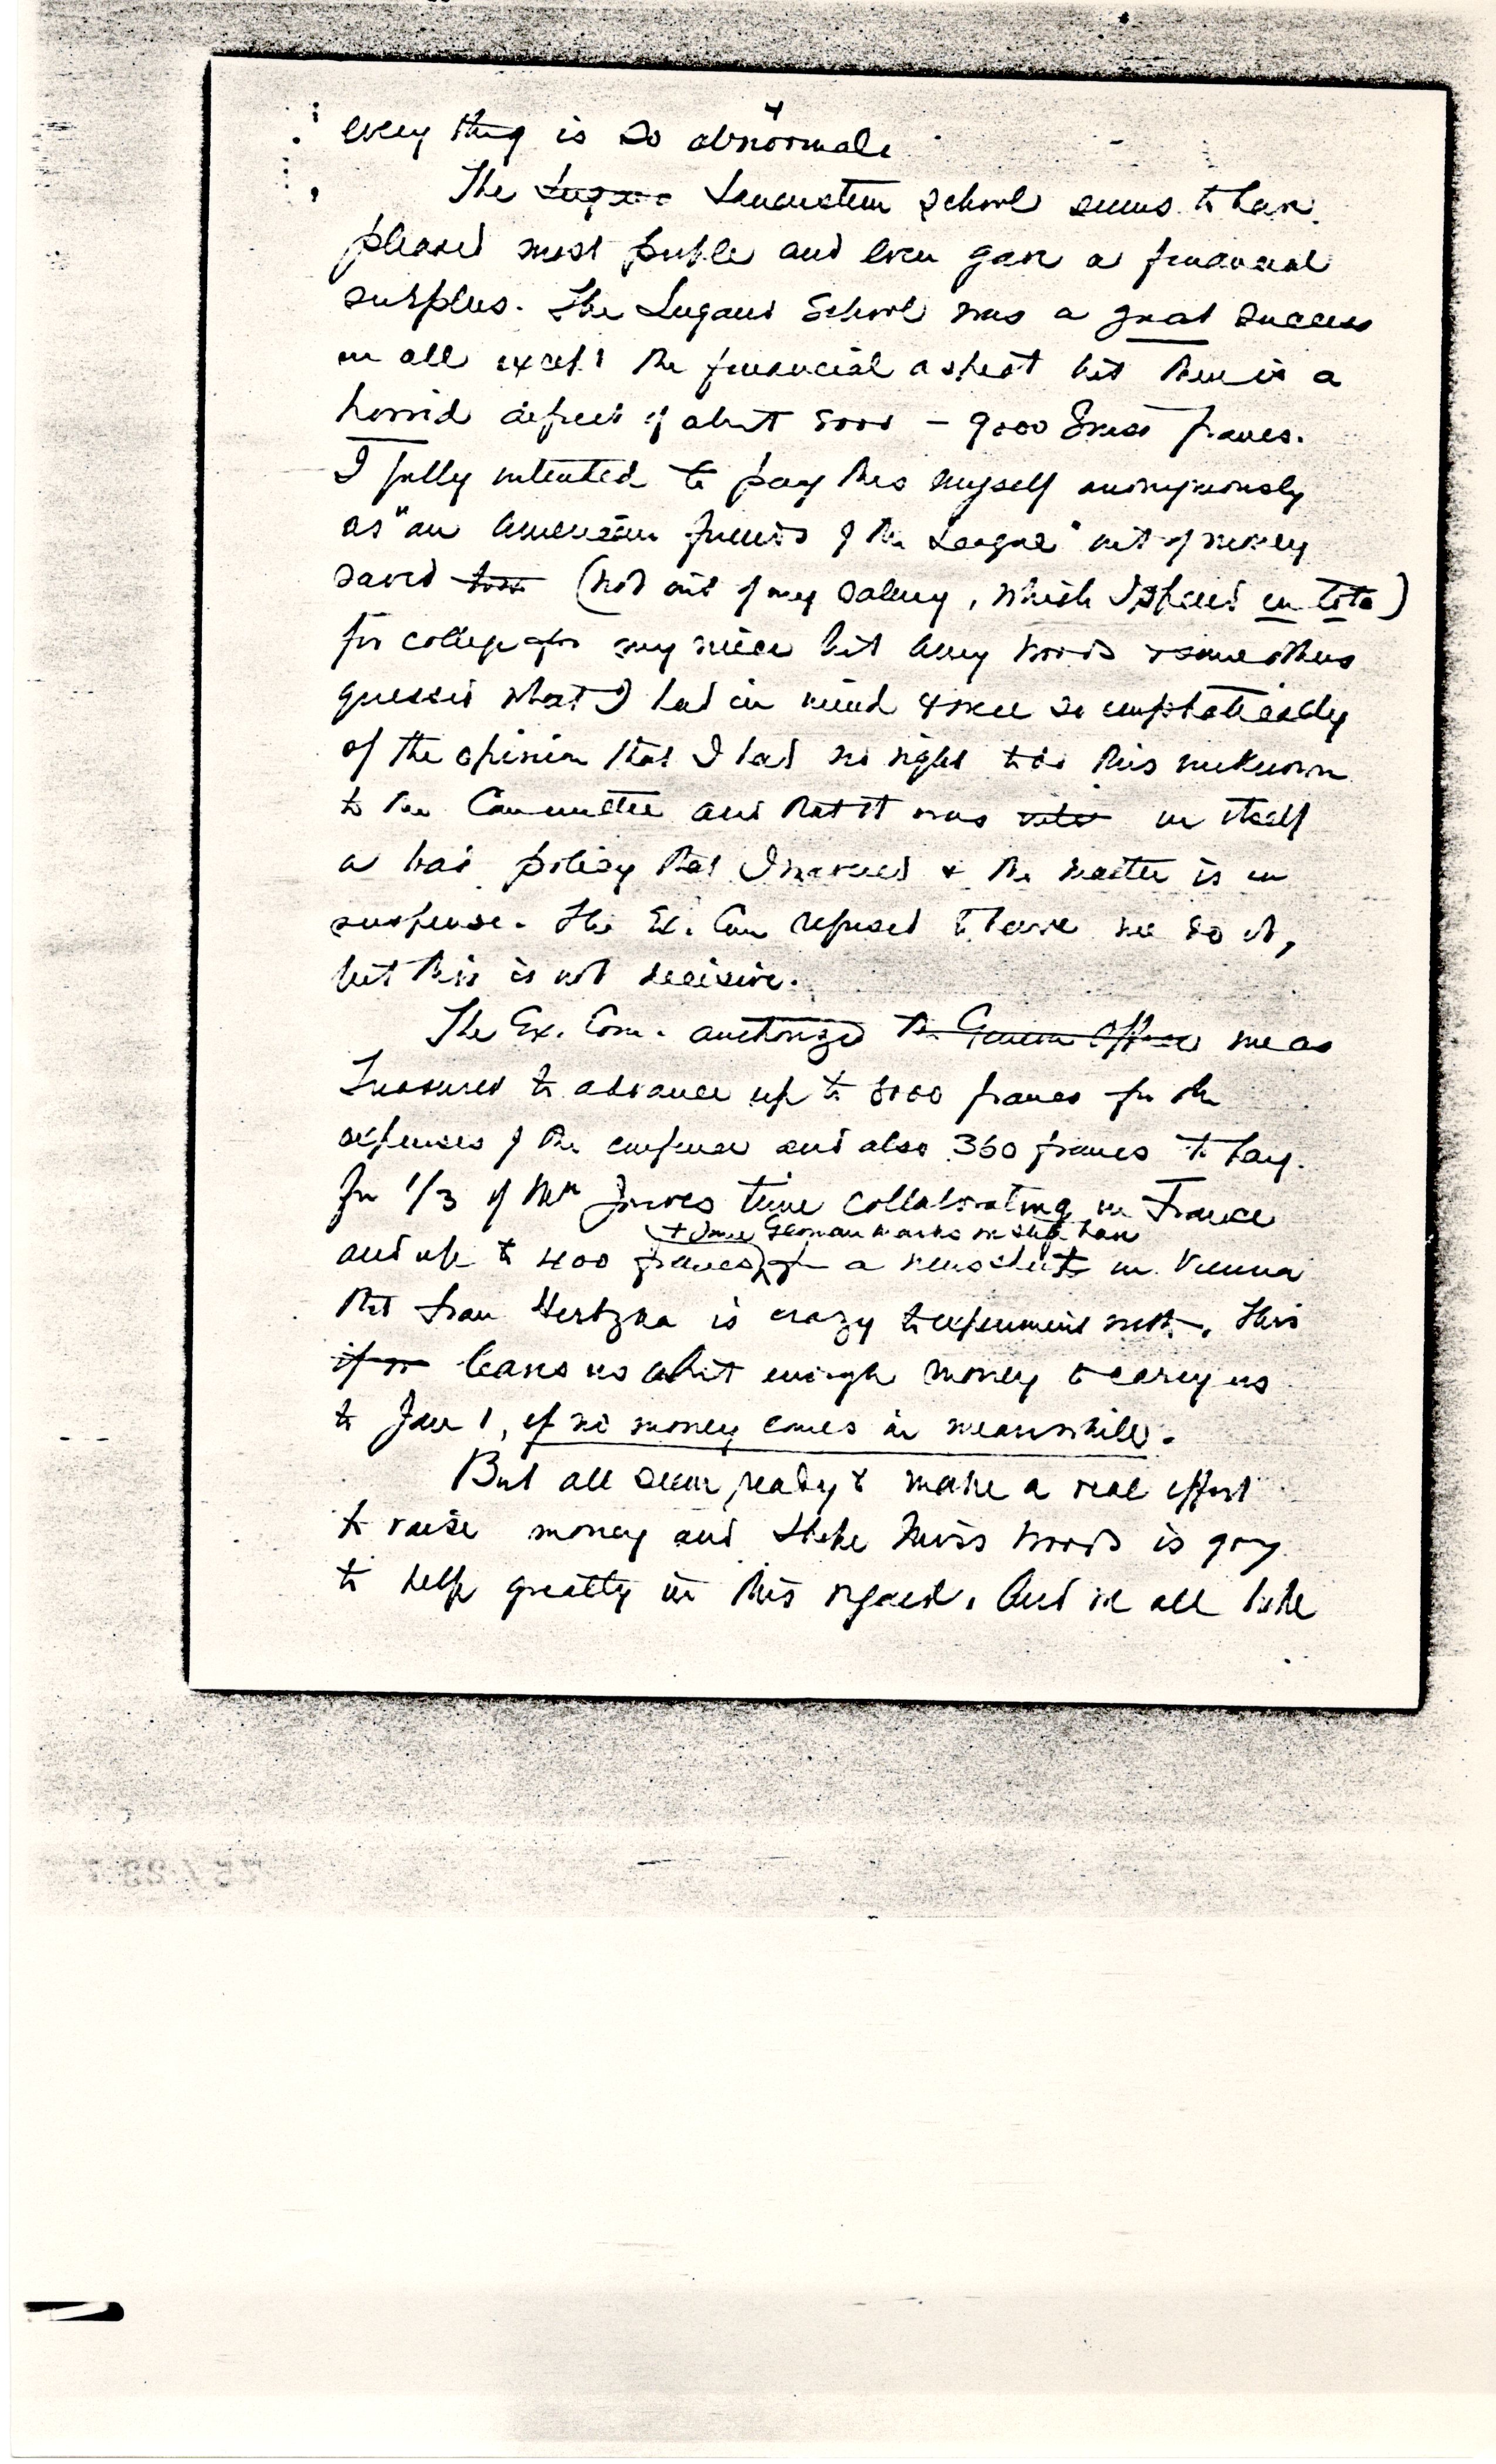 4
every thing is so abnormal.
The Lugano Lauenstein School seems to have
pleased most people and even gave a financial
surplus. The Lugano School was a great success
in all except the financial aspect but there is a
horrid deficit of about 8000 - 9000 Swiss francs.
I fully intended to pay this myself anonymously
as "an American friend of the League" out of money
saved (not out of my salary, which I spend in toto)
for college for my niece but Amy Woods & some others
guessed what I had in mind & were so emphatically
of the opinion that I had no right to do this unknown
to the Committee and that it was in itself
a bad policy that I waived & the matter is in
suspense. The Ex. Com refused to have me do it,
but this is not decisive.
The Ex. Com. authorized the Geneva Office me as
Treasurer to advance up to 8000 francs for the
expenses of the conference and also 360 francs to pay
for 1/3 of Mlle time collaborating in France
(+ some German marks we still have
and up to 400 francs) for a news sheet in Vienna
that Frau Hertzka is crazy to experiment with. This
if we leaves us about enough money to carry us
to Jan 1, if no money comes in meanwhile.
But all seem ready to make a real effort
to raise money and I hope Miss Woods is going
to help greatly in this regard. And we all hope